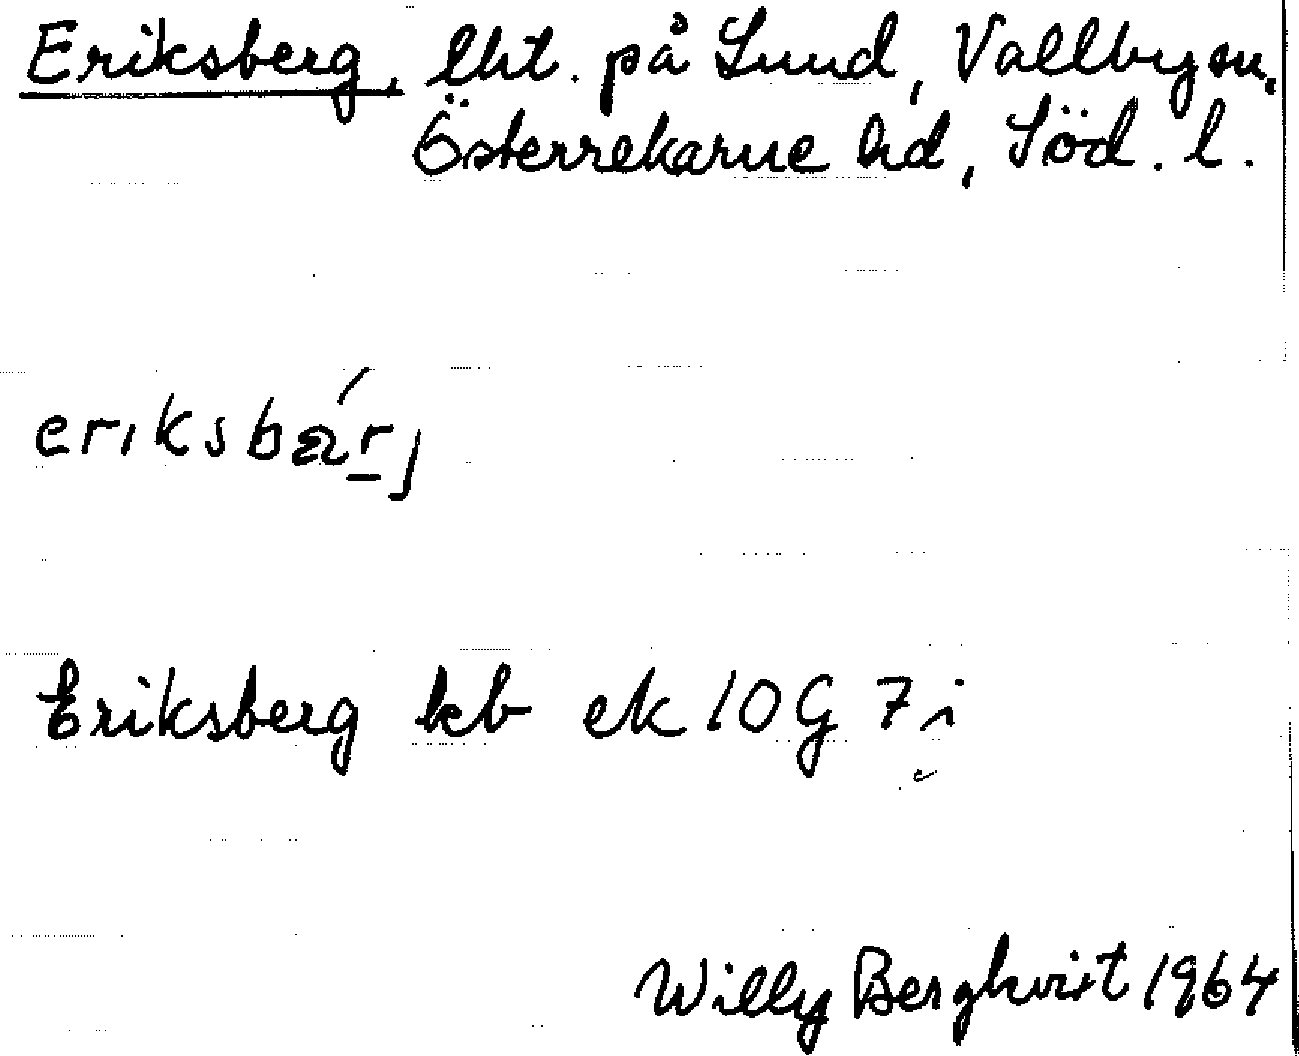 Eriksberg, lht. på Lund, Vallby sn,
Österrekarne hd, Söd. l.
eriksbär̲j
Eriksberg kb ek 10 G 7 i
Willy Bergkvist 1964